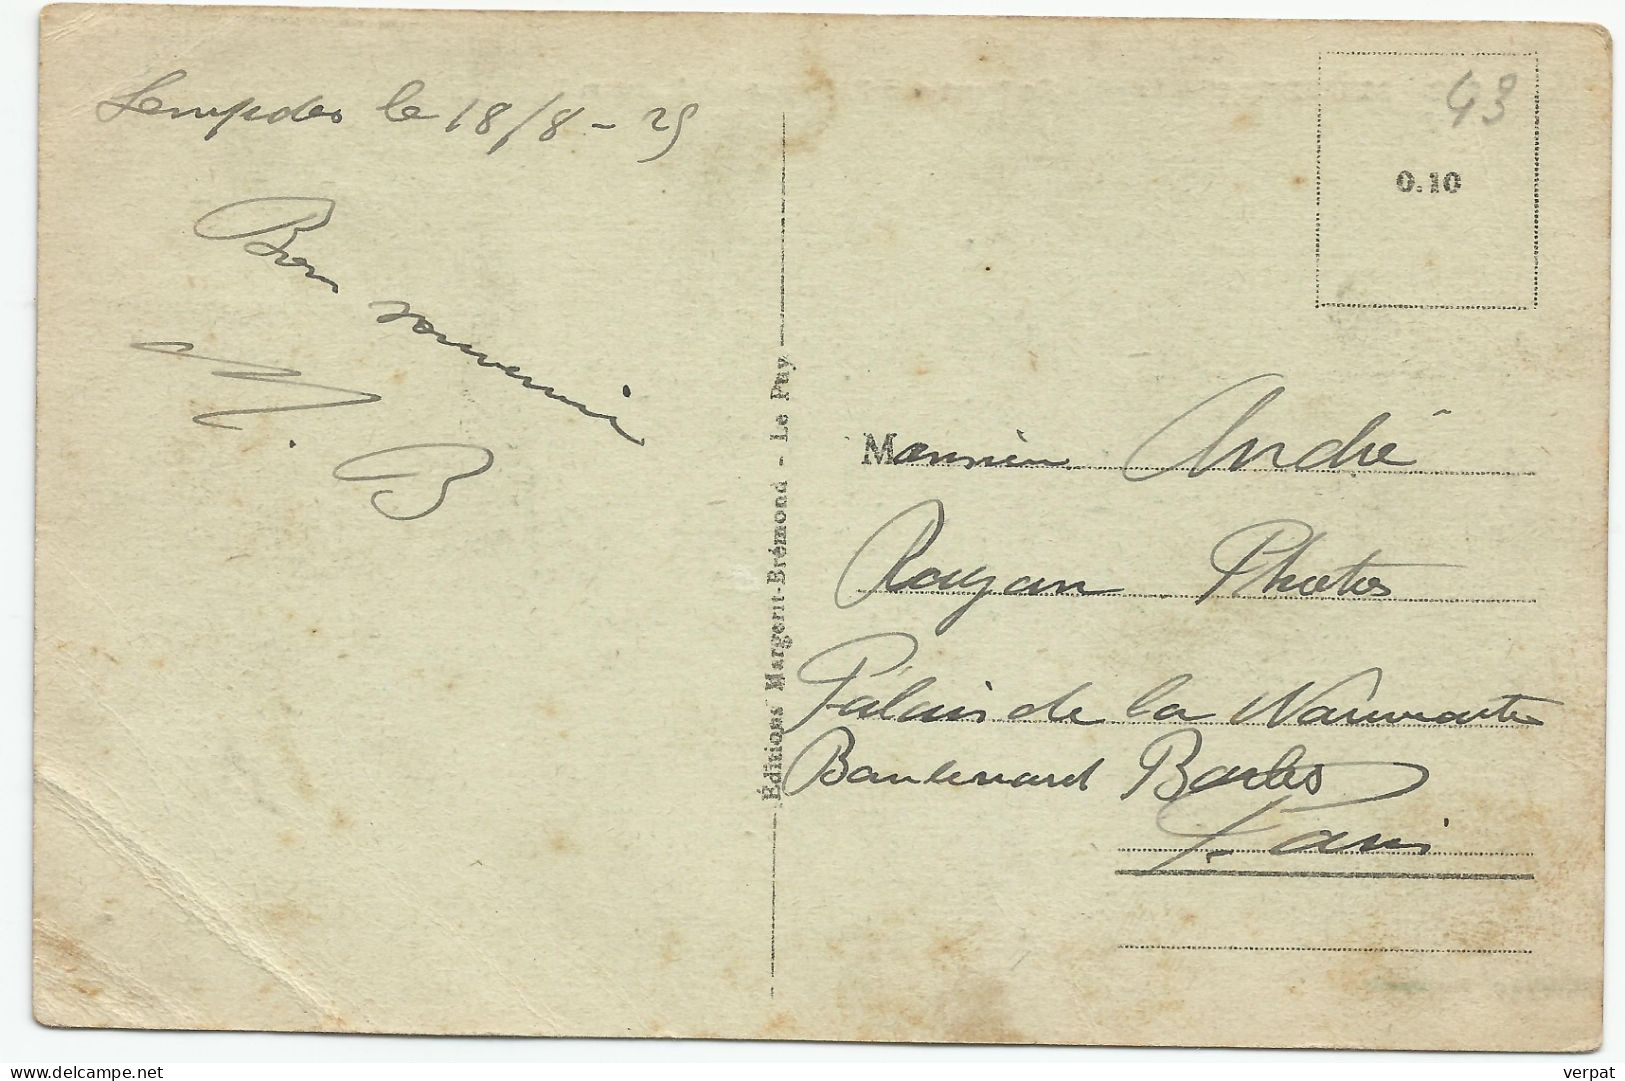 Lempdes le 18/8 - 25
Bon souvenir
M. B
Éditions Margerit-Brémond - Le Puy
43
0.10
Monsieur André
Rayon Photos
Palais de la Nouveautés
Boulevard Barbès
Paris
verpat